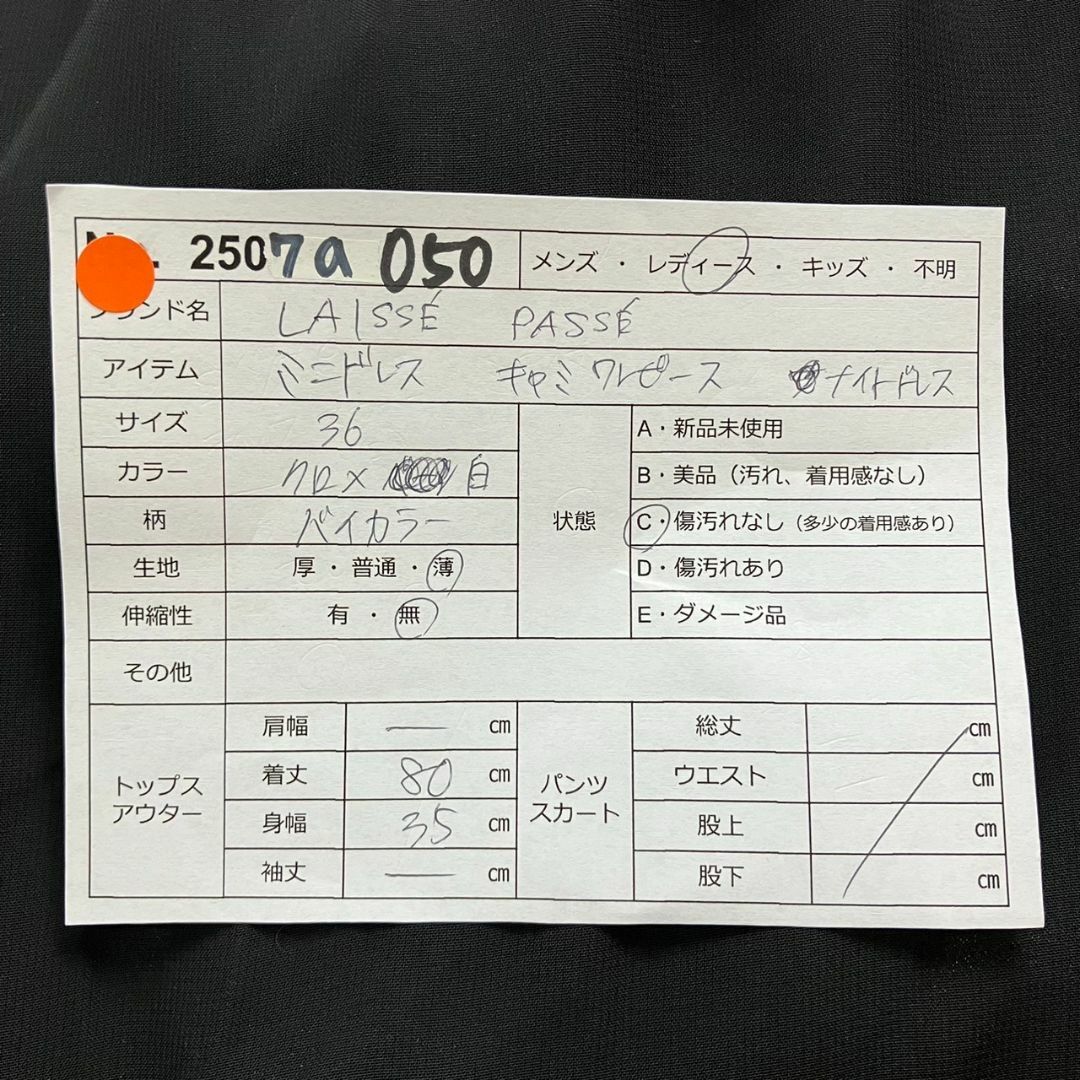 No. 2507a 050 メンズ ・ レディース ・ キッズ ・ 不明
ブランド名 LAISSÉ PASSÉ
アイテム ミニドレス キャミワンピース ナイトドレス
サイズ 36
カラー クロ× 白
柄 バイカラー
生地 厚 ・ 普通 ・ 薄
伸縮性 有 ・ 無
状態
A・新品未使用
B・美品（汚れ、着用感なし）
C・傷汚れなし（多少の着用感あり）
D・傷汚れあり
E・ダメージ品
その他
トップス
アウター
肩幅 — cm
着丈 80 cm
身幅 35 cm
袖丈 — cm
パンツ
スカート
総丈 cm
ウエスト cm
股上 cm
股下 cm